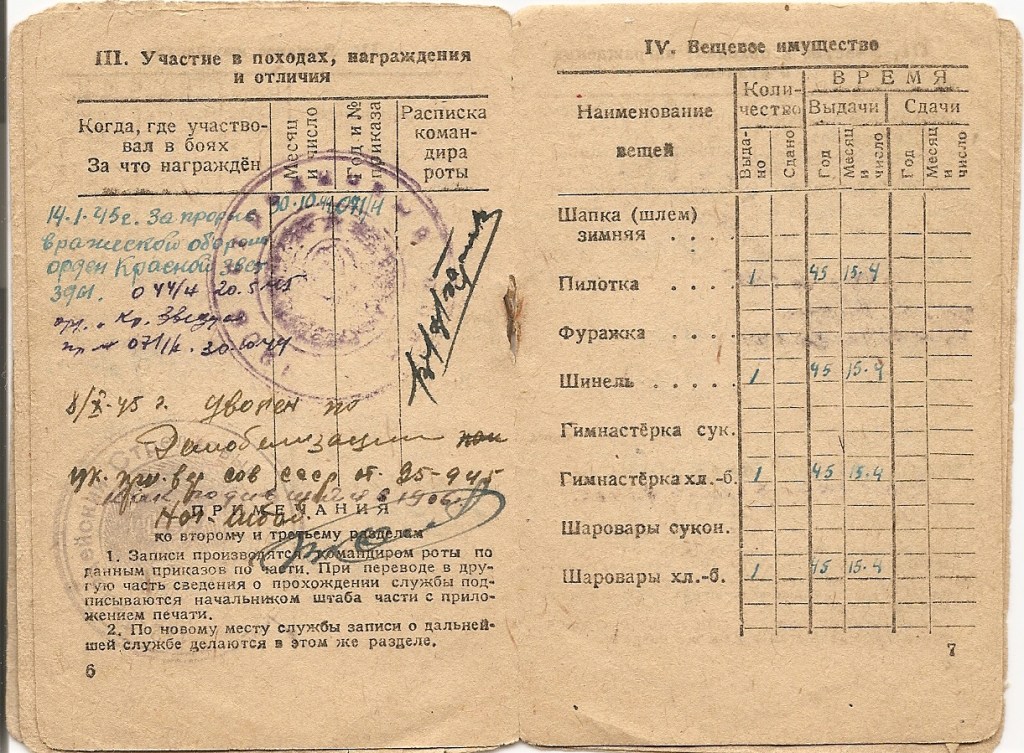 III. Участие в походах, награждения
и отличия
Когда, где участво-
вал в боях
За что награждён
Месяц
и число
Год и №
приказа
Расписка
коман-
дира
роты
14.1.45г. За прорыв
вражеской обороны
орден Красной Звез-
ды. 044/н 20.5
30.10.44 071/н
орд. Кр. Звезды
пр № 071/н. 30.10.44
8/X-45 г. уволен по
Демобилизации
ук. през. вер сов СССР от 25-9-45
как родившийся в 1906
Нач. штаба
ПРИМЕЧАНИЯ
ко второму и третьему разделам
1. Записи производятся командиром роты по
данным приказов по части. При переводе в дру-
гую часть сведения о прохождении службы под-
писываются начальником штаба части с прило-
жением печати.
2. По новому месту службы записи о дальней-
шей службе делаются в этом же разделе.
6
IV. Вещевое имущество
Наименование
вещей
Коли-
чество
ВРЕМЯ
Выдачи
Сдачи
Выда-
но
Сдано
Год
Месяц
и
число
Год
Месяц
и
число
Шапка (шлем)
зимняя . . . .
Пилотка . . . . 1 45 15.4
Фуражка . . . .
Шинель . . . . . 1 45 15.4
Гимнастёрка сук.
Гимнастёрка хл.-б. 1 45 15.4
Шаровары сукон.
Шаровары хл.-б. 1 45 15.4
7